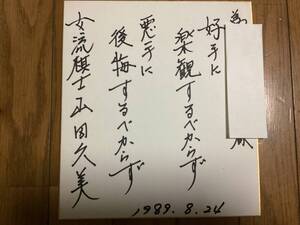 好手に
楽観するべからず
悪手に
後悔するべからず
女流棋士 山田久美
1989.8.24